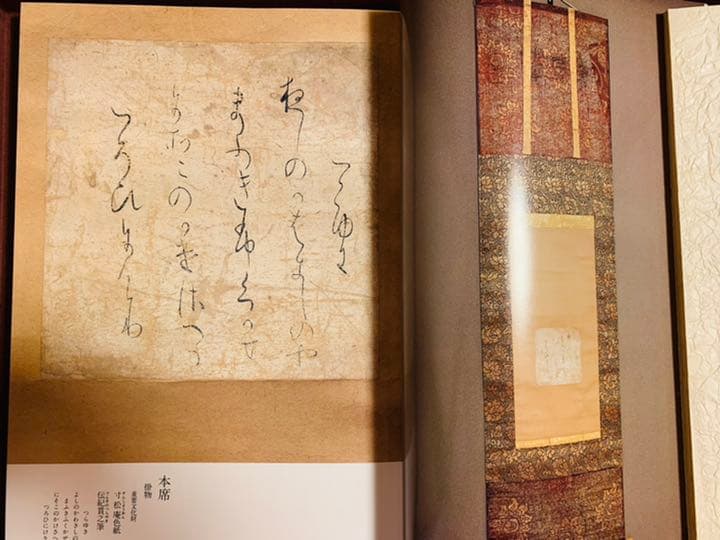 つらゆき
よしのかはきしのや
まふきふくかせ
にそこのかけさへう
つろひにけり
本席
掛物
重要文化財
寸松庵色紙
伝紀貫之筆
つらゆき
よしのかわきしの
まふきふくかせ
にそこのかけさへ
つろひにけ